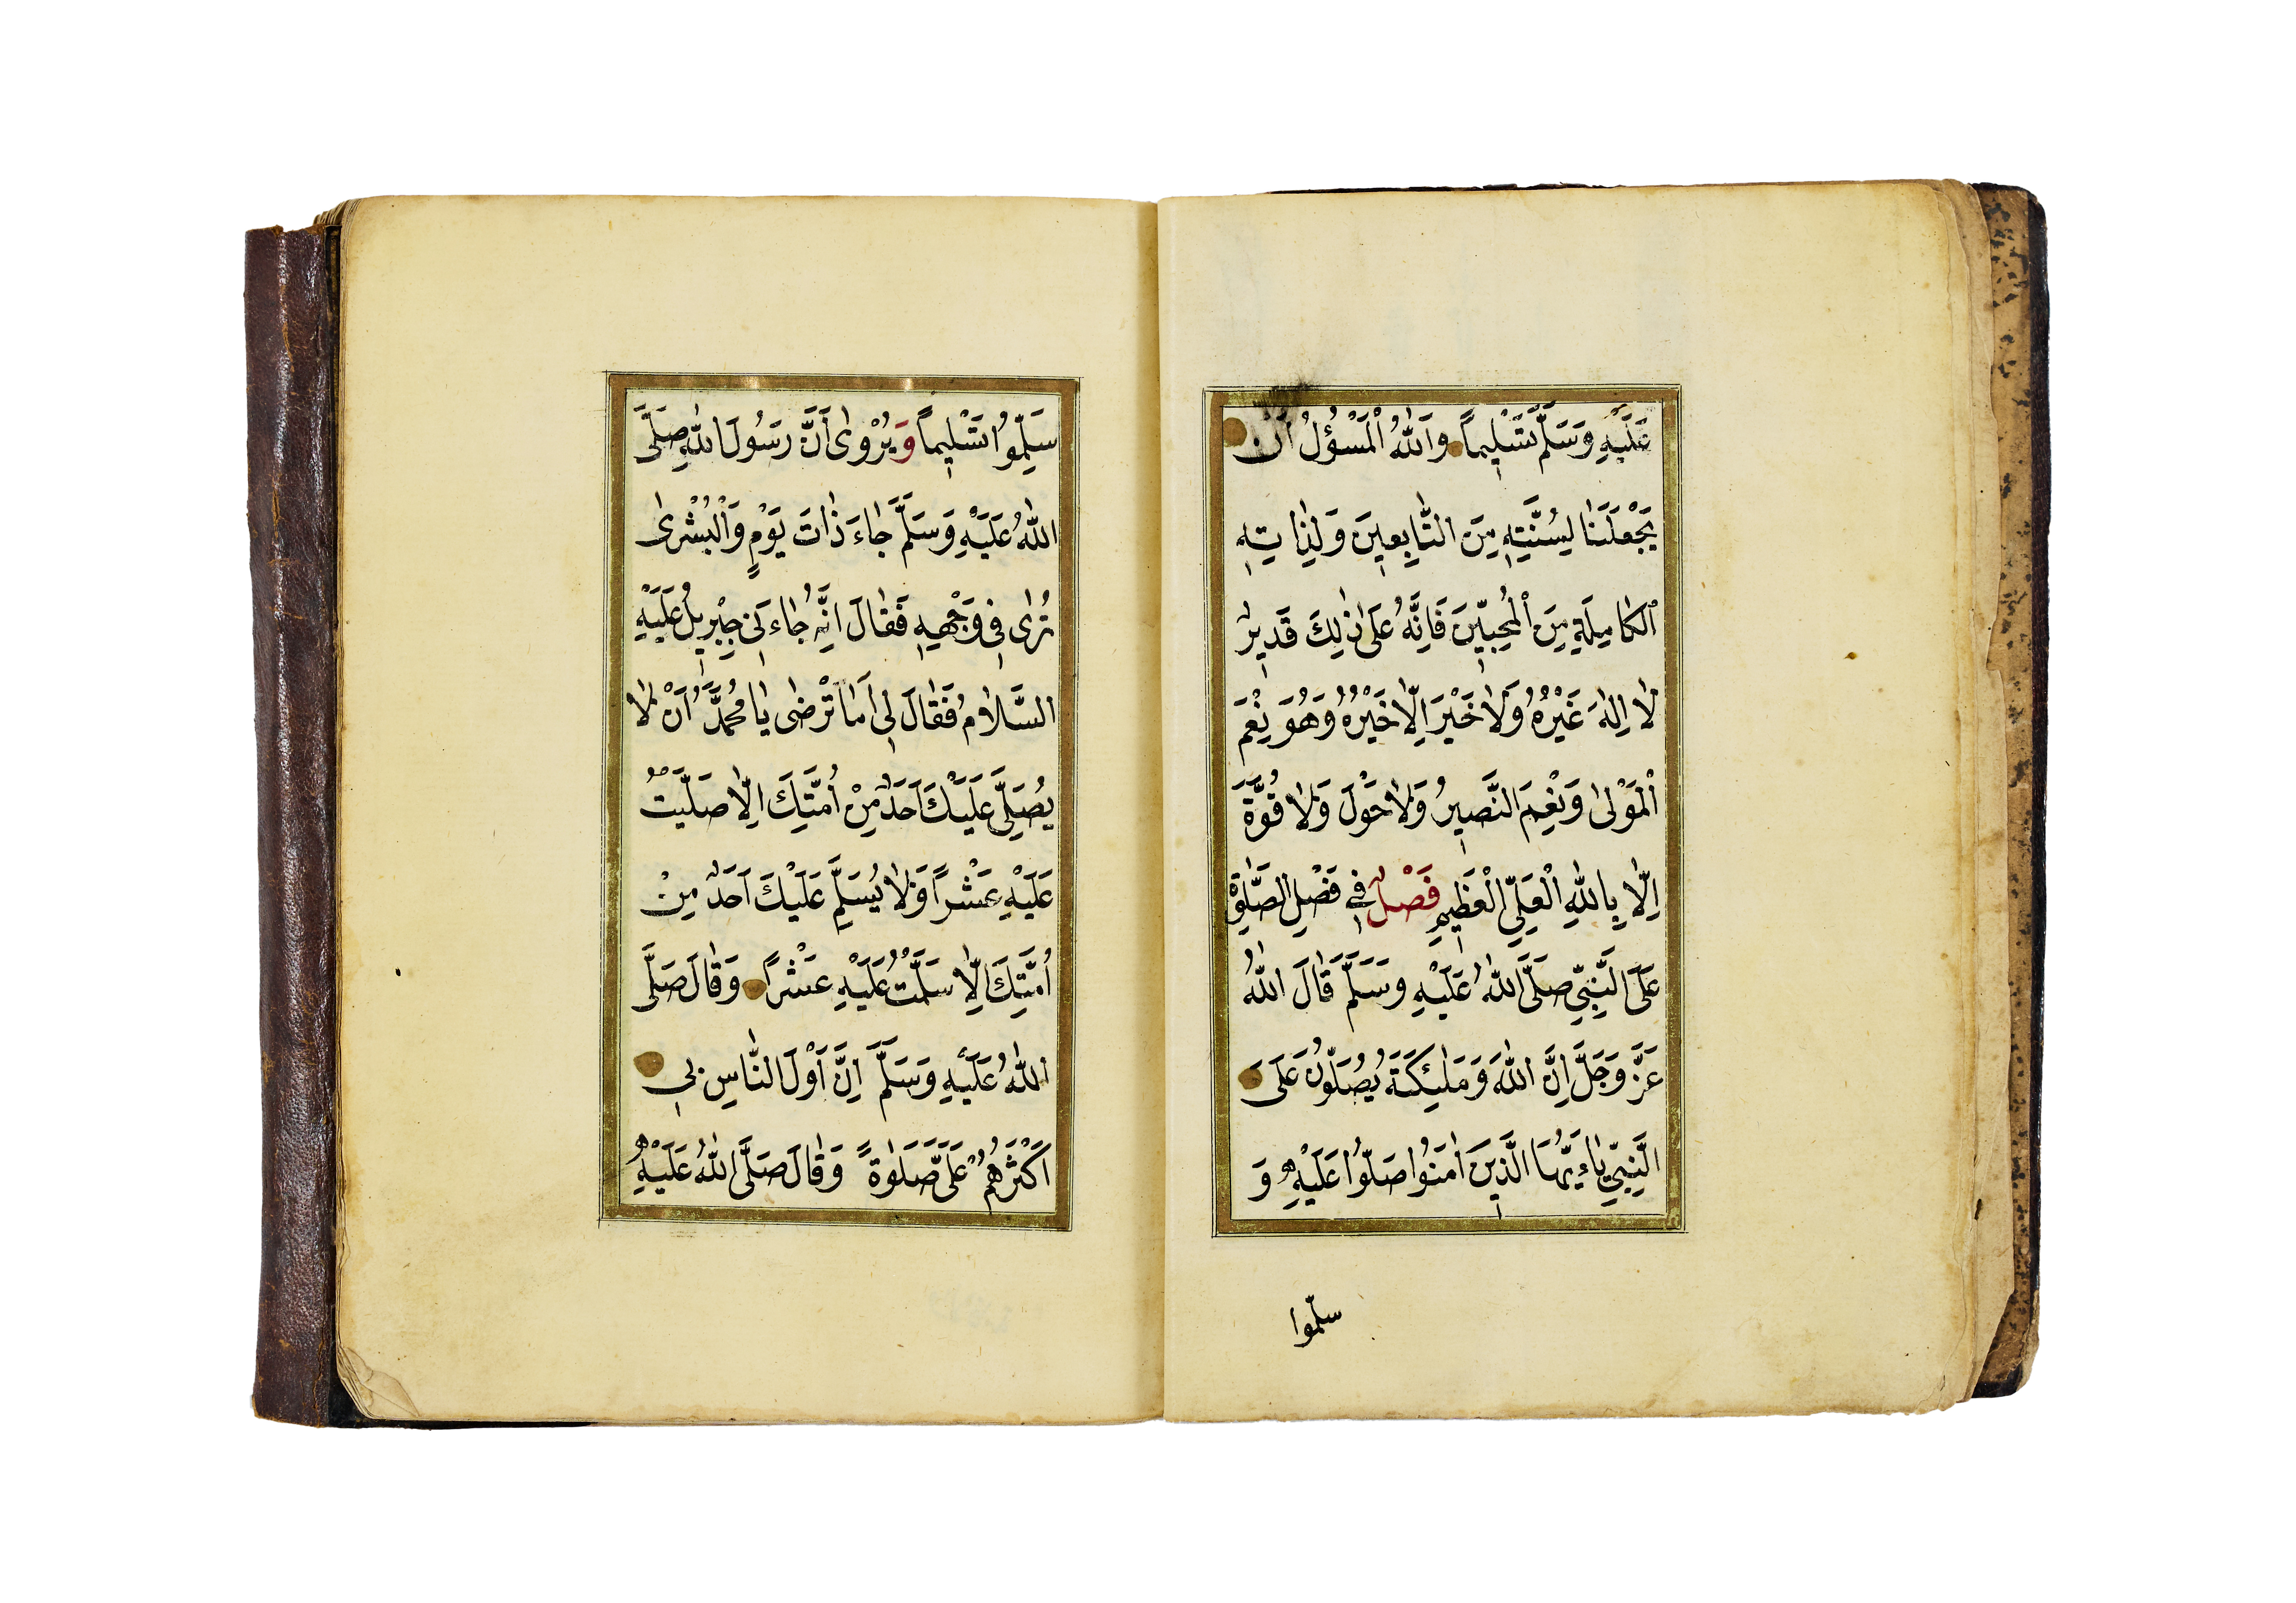 عَلَيْهِ وَسَلَّمَ تَسْلِيماً وَاَللّٰهُ الْمَسْؤُلُ اَنْ
يَجْعَلَنَا لِسُنَّتِهِ مِنَ التَّابِعِينَ وَلِذَاتِهِ
الْكَامِلَةِ مِنَ الْمُحِبِّينَ فَاِنَّهُ عَلَى ذٰلِكَ قَدِيرٌ
لَا اِلٰهَ غَيْرُهُ وَلَا خَيْرَ اِلَّا خَيْرُهُ وَهُوَ نِعْمَ
الْمَوْلٰى وَنِعْمَ النَّصِيرُ وَلَا حَوْلَ وَلَا قُوَّةَ
اِلَّا بِاللّٰهِ الْعَلِيِّ الْعَظِيمِ فَصْلٌ فِي فَضْلِ الصَّلٰوةِ
عَلَى النَّبِيِّ صَلَّى اللّٰهُ عَلَيْهِ وَسَلَّمَ قَالَ اللّٰهُ
عَزَّ وَجَلَّ اِنَّ اللّٰهَ وَمَلٰئِكَتَهُ يُصَلُّونَ عَلَى
النَّبِيِّ يَاءَيُّهَا الَّذِينَ اٰمَنُوا صَلُّوا عَلَيْهِ وَ
سلّموا
سَلِّمُوا تَسْلِيماً وَيُرْوٰى اَنَّ رَسُولَ اللّٰهِ صَلَّى
اللّٰهُ عَلَيْهِ وَسَلَّمَ جَاءَ ذَاتَ يَوْمٍ وَالْبُشْرٰى
تُرٰى فِي وَجْهِهِ فَقَالَ اِنَّهُ جَاءَنِي جِبْرِيلُ عَلَيْهِ
السَّلَامُ فَقَالَ لِي اَمَا تَرْضٰى يَا مُحَمَّدُ اَنْ لَا
يُصَلِّيَ عَلَيْكَ اَحَدٌ مِنْ اُمَّتِكَ اِلَّا صَلَّيْتُ
عَلَيْهِ عَشْراً وَلَا يُسَلِّمَ عَلَيْكَ اَحَدٌ مِنْ
اُمَّتِكَ اِلَّا سَلَّمْتُ عَلَيْهِ عَشْراً وَقَالَ صَلَّى
اللّٰهُ عَلَيْهِ وَسَلَّمَ اِنَّ اَوْلَ النَّاسِ بِي
اَكْثَرُهُمْ عَلَيَّ صَلٰوةً وَقَالَ صَلَّى اللّٰهُ عَلَيْهِ